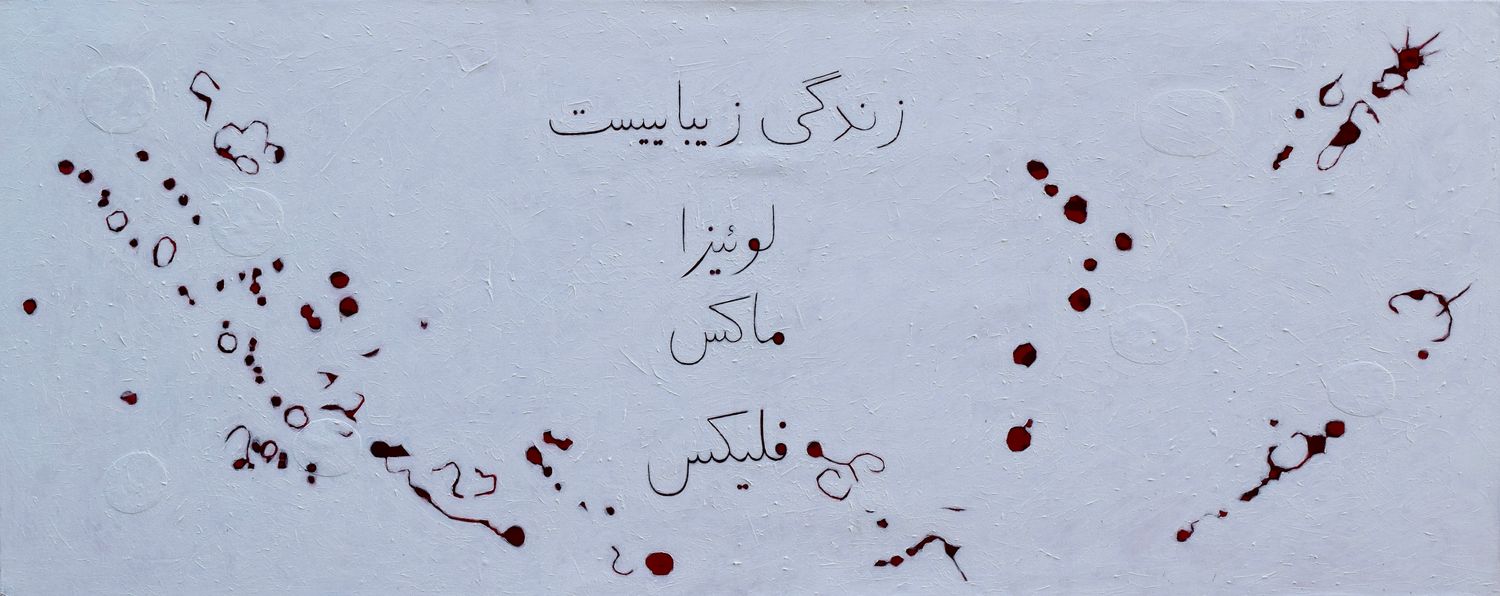 زندگی زیباییست
لوئیزا
ماکس
فلیکس